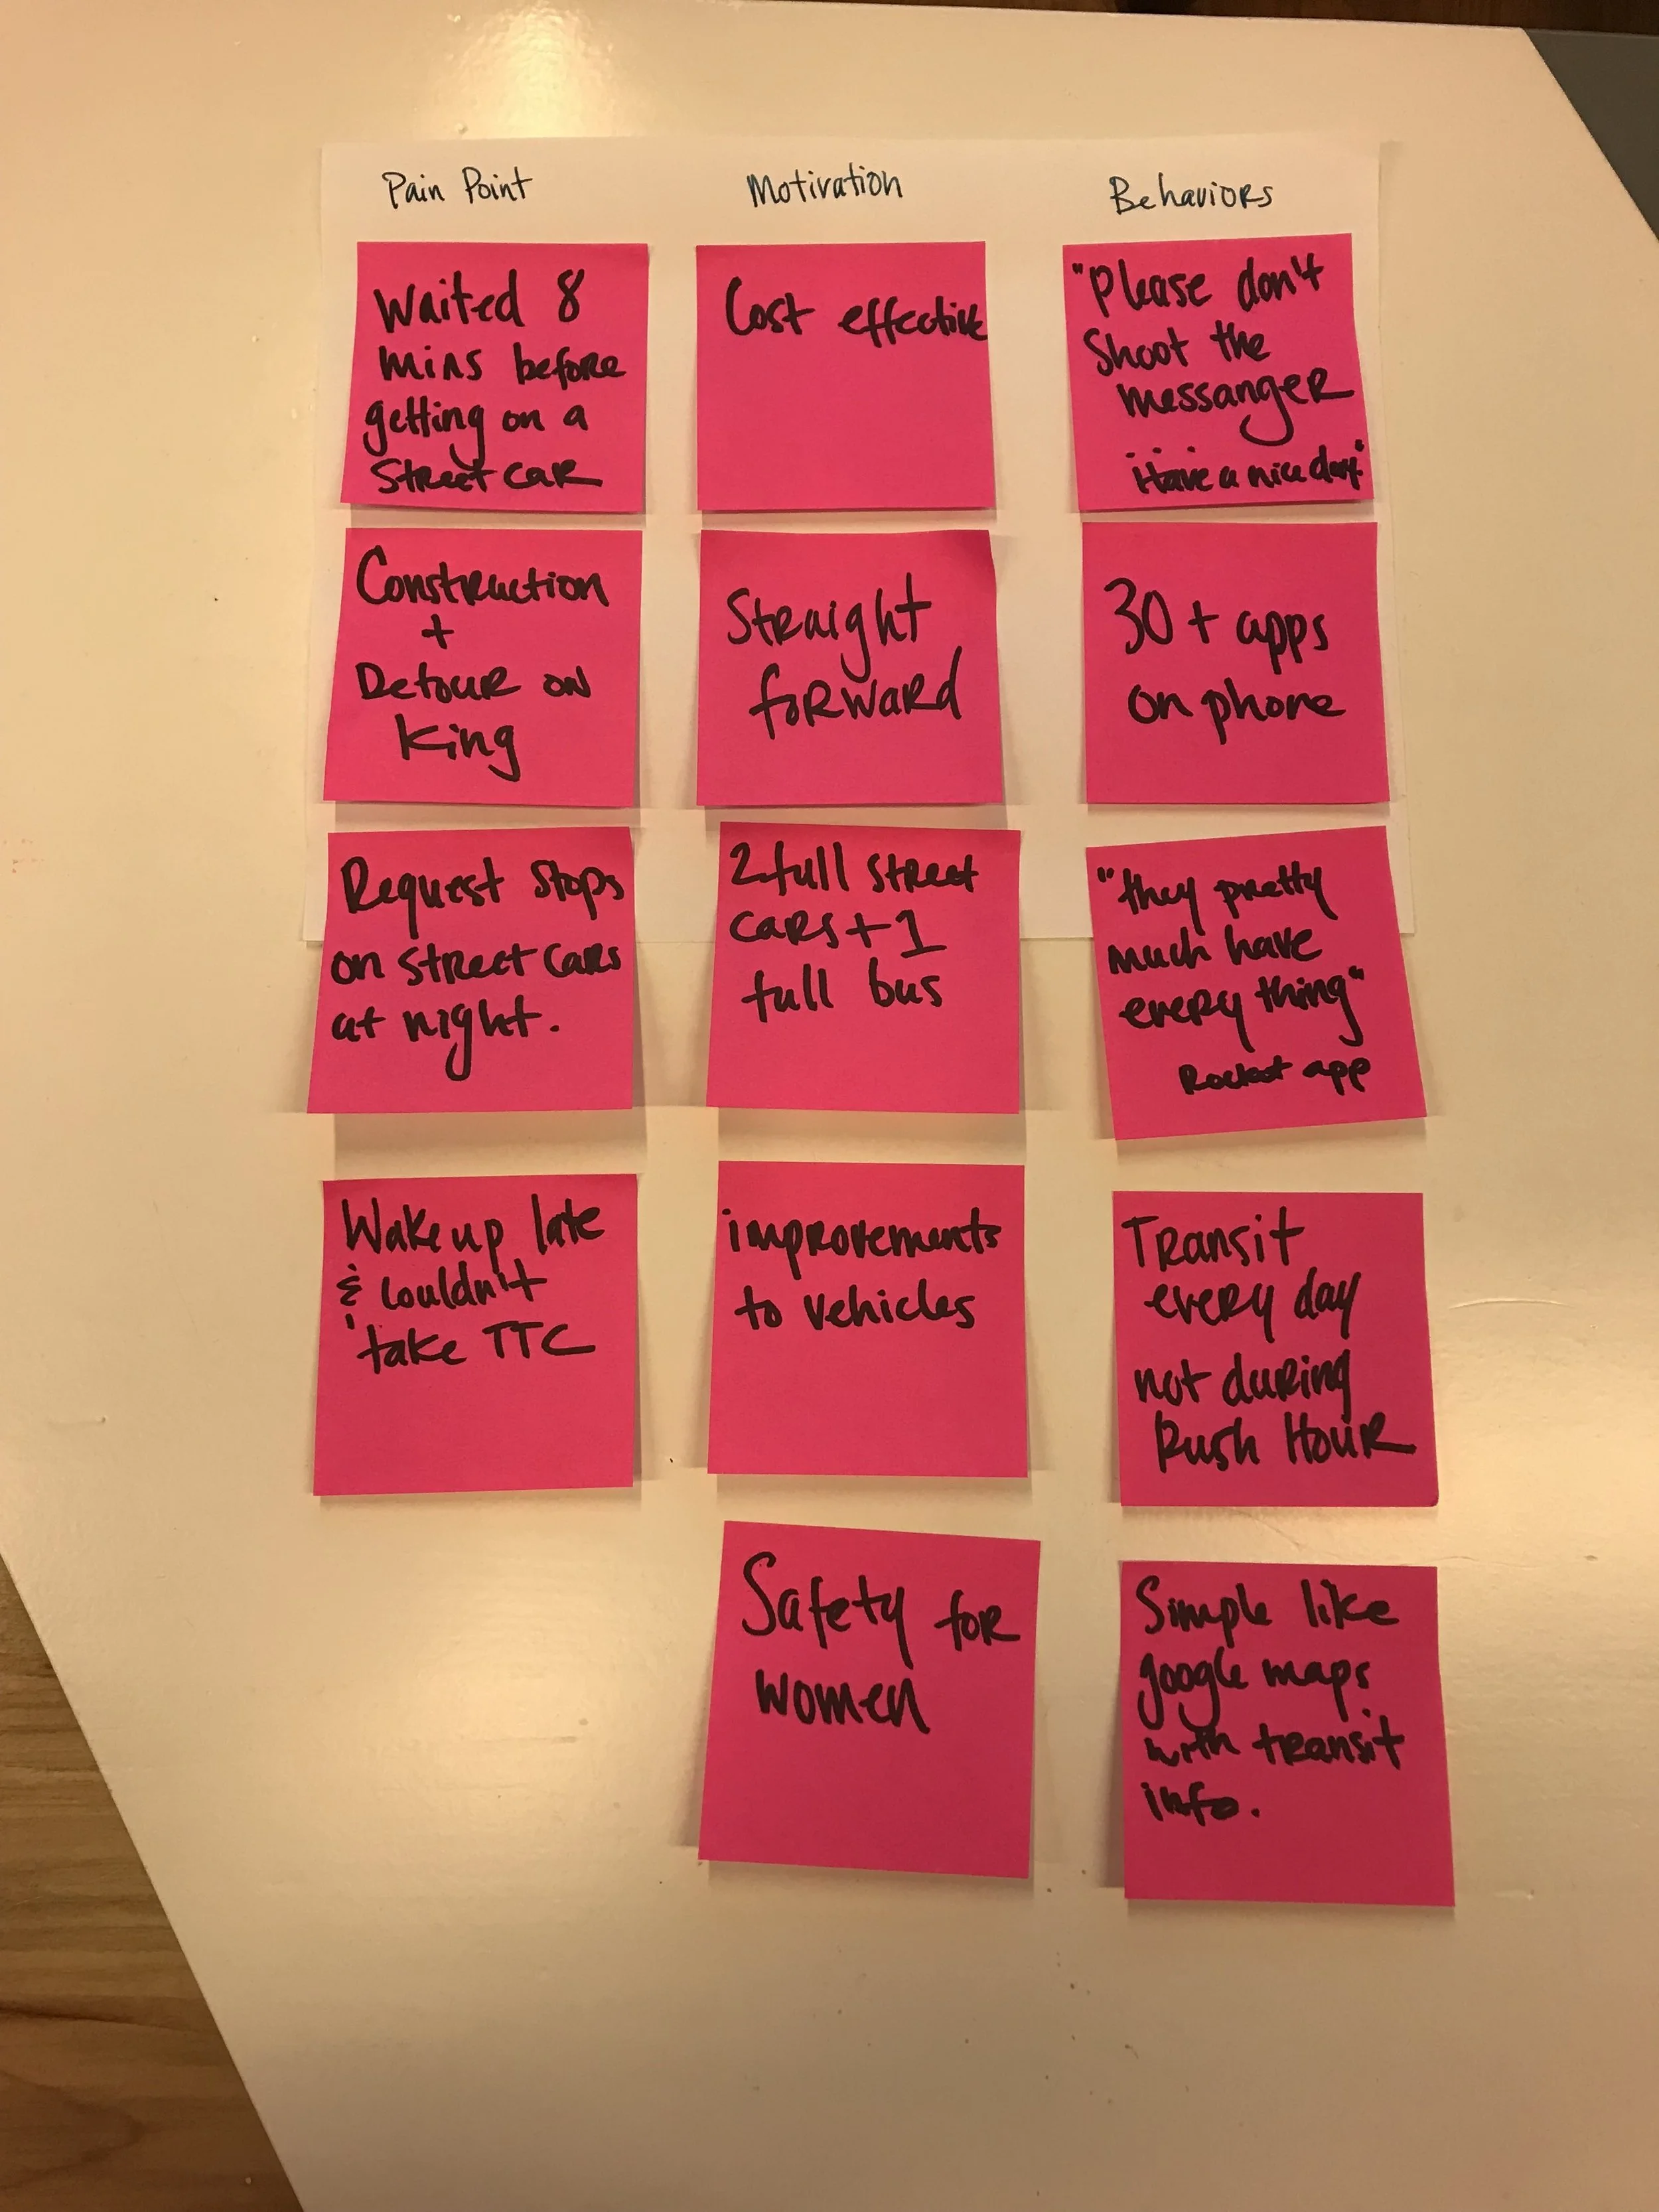 Pain Point
Motivation
Behaviors
Waited 8
mins before
getting on a
Street car
Construction
+
Detour on
King
Request Stops
on street cars
at night.
Wake up late
& couldn't
take TTC
Cost effective
Straight
forward
2 full street
cars + 1
full bus
improvements
to vehicles
Safety for
women
"Please don't
Shoot the
messanger
...
Have a nice day"
30 + apps
on phone
"they pretty
much have
every thing"
Rocket app
Transit
every day
not during
Rush Hour
Simple like
google maps
with transit
info.